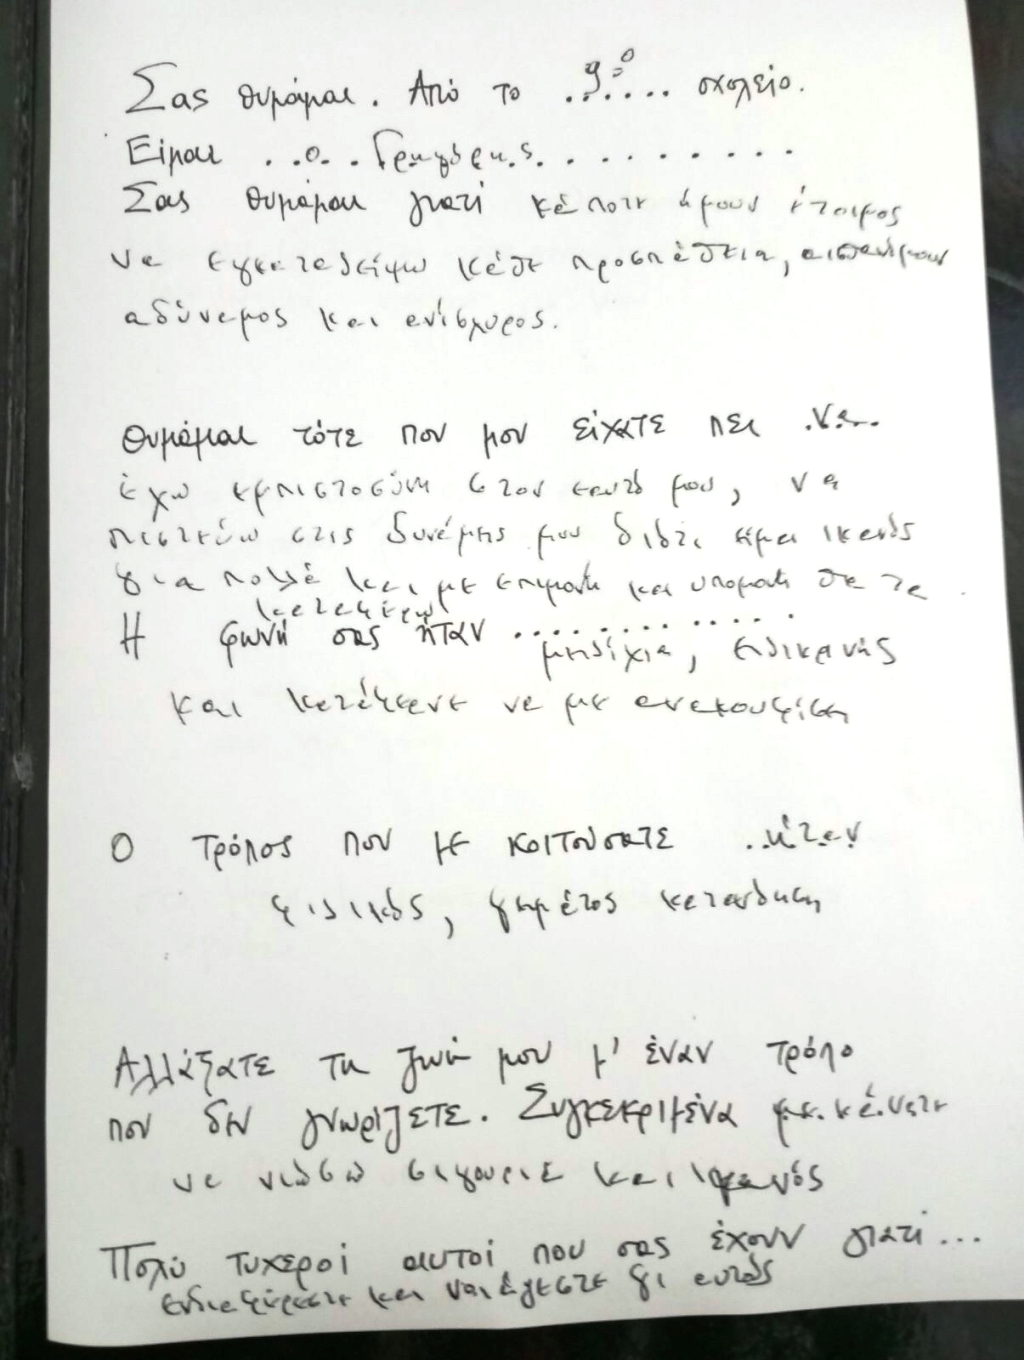 Σας θυμάμαι. Από το ..9ο.... σχολείο.
Είμαι ..ο..Γρηγόρης..........
Σας θυμάμαι γιατί κάποτε ήμουν έτοιμος
να εγκαταλείψω κάθε προσπάθεια, αισθανόμουν
αδύναμος και ανίσχυρος.
Θυμάμαι τότε που μου είχατε πει .να..
έχω εμπιστοσύνη στον εαυτό μου, να
πιστεύω στις δυνάμεις μου διότι είμαι ικανός
για πολλά και με επιμονή και υπομονή θα τα
καταφέρω
Η φωνή σας ήταν .............
μειλίχια, ειλικρινής
και κατάφερνε να με ανακουφίσει
Ο τρόπος που με κοιτούσατε ..ήταν
φιλικός, γεμάτος κατανόηση
Αλλάξατε τη ζωή μου μ' έναν τρόπο
που δεν γνωρίζετε. Συγκεκριμένα με κάνατε
να νιώσω σιγουριά και ικανός
Πολύ τυχεροί αυτοί που σας έχουν γιατί...
ενδιαφέρεστε και νοιάζεστε γι αυτούς